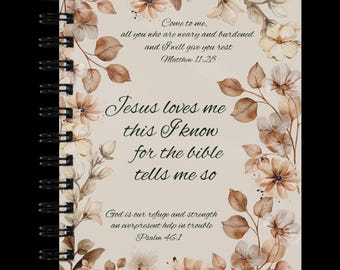 Come to me,
all you who are weary and burdened
and I will give you rest
Matthew 11:28
Jesus loves me
this I know
for the bible
tells me so
God is our refuge and strength
an everpresent help in trouble
Psalm 46:1